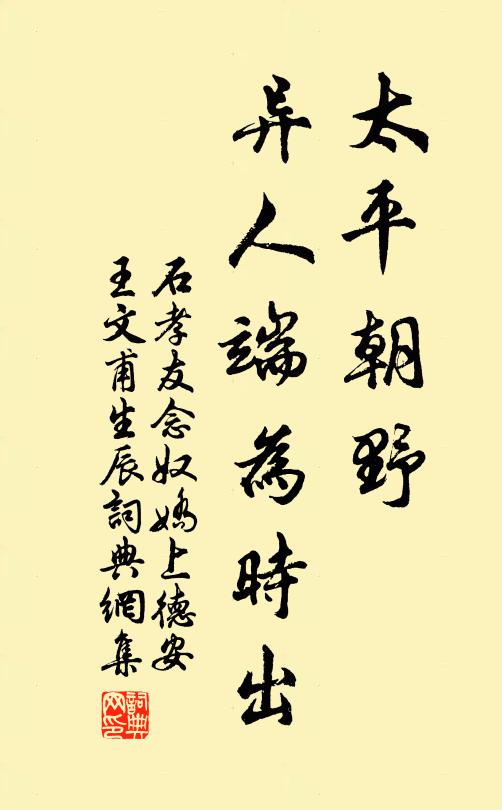 太平朝野
异人端為時出
石孝友念奴嬌上德安
王文甫生辰詞典網集
詞典
网印